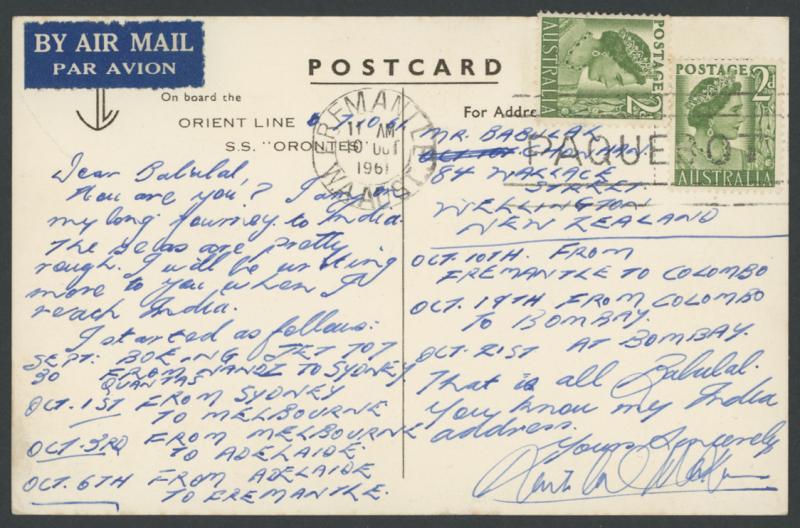 BY AIR MAIL
PAR AVION
POSTCARD
On board the
ORIENT LINE
S.S. "ORONTES
For Addre
AUSTRALIA
POSTAGE
2d
POSTAGE
2d
AUSTRALIA
FREMANTLE
11 AM
10 OCT
1961
W.A. AUST
PAQUEBOT
Dear Babulal,
How are you? I am on
my long journey to India.
The seas are pretty
rough. I will be writing
more to you when I
reach India.
I started as follows:
SEPT: BOEING JET 707
30 FROM NANDI TO SYDNEY
QUANTAS
OCT. 1ST FROM SYDNEY
TO MELBOURNE
OCT. 3RD FROM MELBOURNE
TO ADELAIDE.
OCT. 6TH FROM ADELAIDE
TO FREMANTLE.
MR. BABULAL
CHOUHAN
84 WALLACE
STREET
WELLINGTON
NEW ZEALAND
OCT. 10TH. FROM
FREMANTLE TO COLOMBO
OCT. 19TH FROM COLOMBO
TO BOMBAY.
OCT. 21ST AT BOMBAY.
That is all Babulal.
You know my India
address.
Yours Sincerely